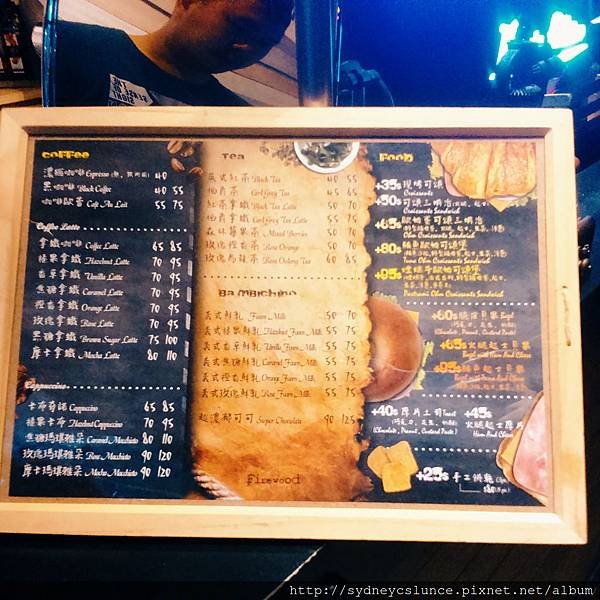 Coffee
濃縮咖啡 Espresso 40
黑咖啡 Black Coffee 40 55
咖啡歐蕾 Cafe Au Lait 55 75
Coffee Latte
拿鐵咖啡 Coffee Latte 65 85
榛果拿鐵 Hazelnut Latte 70 95
香草拿鐵 Vanilla Latte 70 95
焦糖拿鐵 Caramel Latte 70 95
橙香拿鐵 Orange Latte 70 95
玫瑰拿鐵 Rose Latte 70 95
黑糖拿鐵 Brown Sugar Latte 75 100
摩卡拿鐵 Mocha Latte 80 110
Cappuccino
卡布奇諾 Cappuccino 65 85
榛果卡布 Hazelnut Cappuccino 70 95
焦糖瑪琪雅朵 Caramel Macchiato 80 110
玫瑰瑪琪雅朵 Rose Macchiato 90 120
摩卡瑪琪雅朵 Mocha Macchiato 90 120
Tea
英式紅茶 Black Tea 45 55
伯爵茶 Earl Grey Tea 45 65
紅茶拿鐵 Black Tea Latte 55 75
伯爵拿鐵 Earl Grey Tea Latte 55 75
森林莓果茶 Mixed Berries 50 70
玫瑰橙香茶 Rose Orange 50 70
玫瑰烏龍茶 Rose Oolong Tea 60 85
Bambichino
義式鮮乳 Foam Milk 50 70
義式榛果鮮乳 Hazelnut Foam Milk 55 75
義式香草鮮乳 Vanilla Foam Milk 55 75
義式焦糖鮮乳 Caramel Foam Milk 55 75
義式橙香鮮乳 Orange Foam Milk 55 75
義式玫瑰鮮乳 Rose Foam Milk 55 75
超濃郁可可 Super Chocolate 90 125
firewood
Food
+35元 現烤可頌
Croissants
+50元 可頌三明治
Croissants Sandwich
+65元 歐姆蛋可頌三明治
Ohm Croissants Sandwich
+80元 鮪魚歐姆可頌堡
Tuna Ohm Croissants Sandwich
+95元 煙燻牛歐姆可頌堡
Pastrami Ohm Croissants Sandwich
+60元 脆烤貝果 Bagel
(巧克力、花生、奶酥)
(Chocolate, Peanut, Custard Paste)
+65元 火腿起士貝果
Bagel with Ham And Cheese
+95元
+40元 厚片土司 Toast
(巧克力、花生、奶酥)
(Chocolate, Peanut, Custard Paste)
+45元
火腿起士厚片
Ham And Cheese
+25元 手工餅乾
http://sydneycslunce.pixnet.net/album